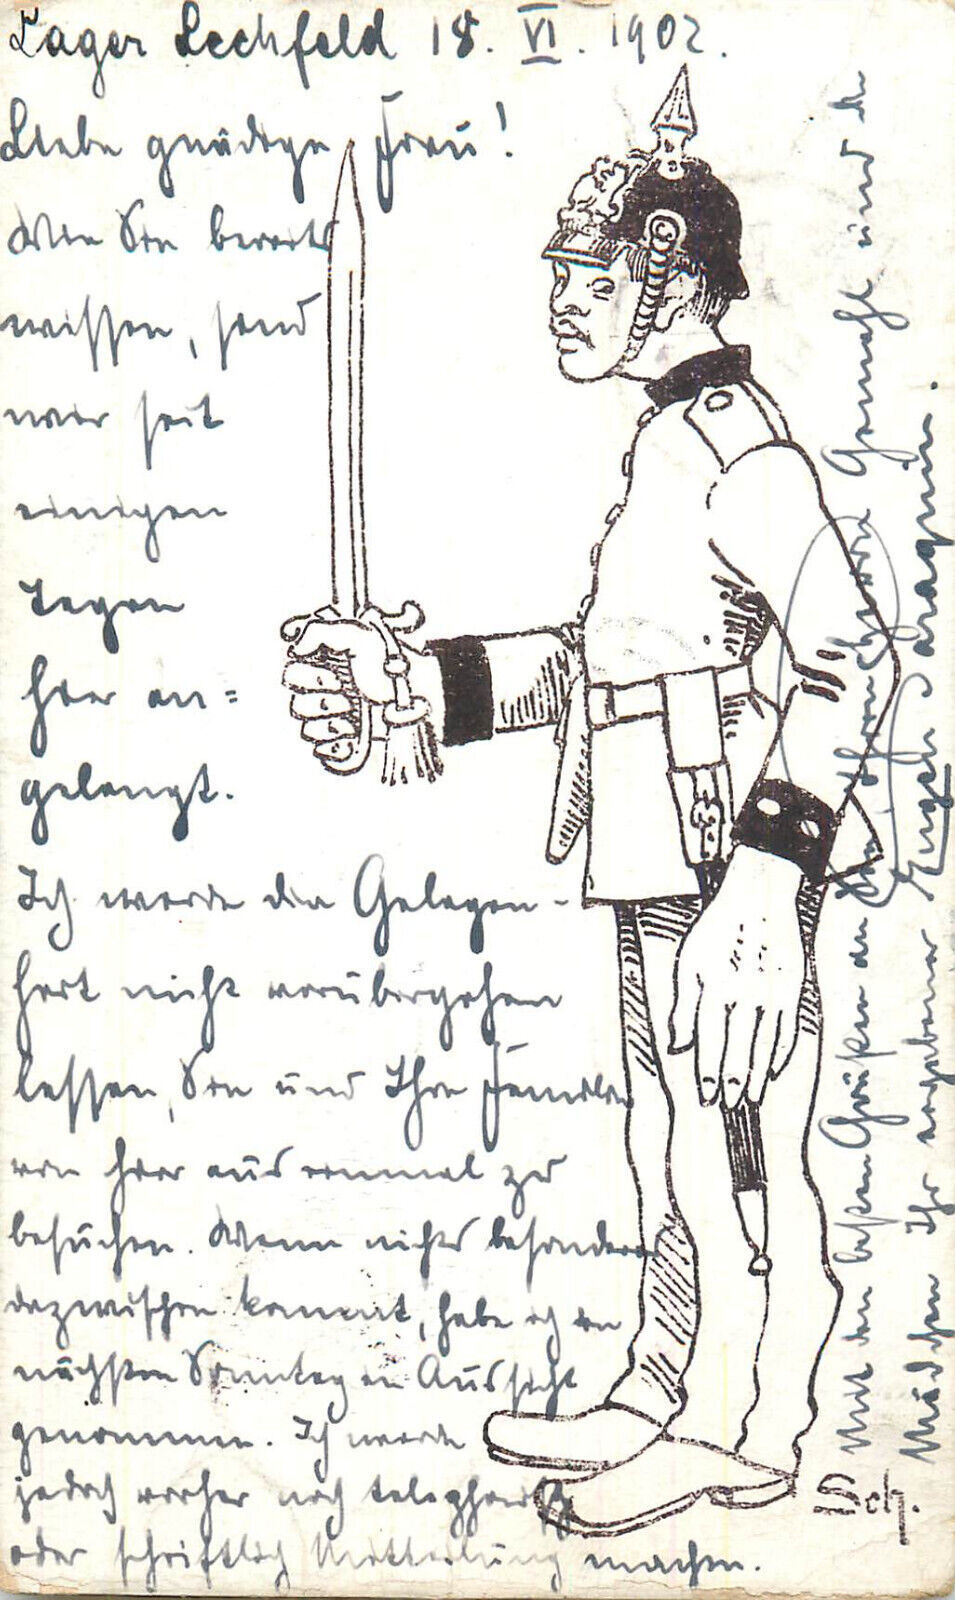 Lager Lechfeld 18. VI. 1902.
Liebe gnädige Frau!
Wie Sie bereits
wissen, sind
wir seit
einigen
Tagen
hier an=
gelangt.
Ich werde die Gelegen-
heit nicht vorübergehen
lassen, Sie und Ihre Familie
von hier aus einmal zu
besuchen. Wenn nichts besonderes
dazwischen kommt, habe ich den
nächsten Sonntag in Aussicht
genommen. Ich werde
jedoch vorher noch telephonisch
oder schriftlich Mitteilung machen.
Mit den besten Grüßen an Gemahl und die
Mädchen Ihr ergebener Eugen
Sch.